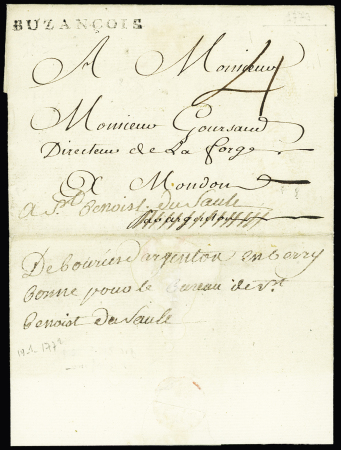 BUZANÇOIS
4
A Monsieur
Monsieur Goursaud
Directeur de La forge
A Mondon
a St Benoist du Sault
De bouriés d'argenton en berry
bonne pour le Bureau de St
Benoist du Sault
1771